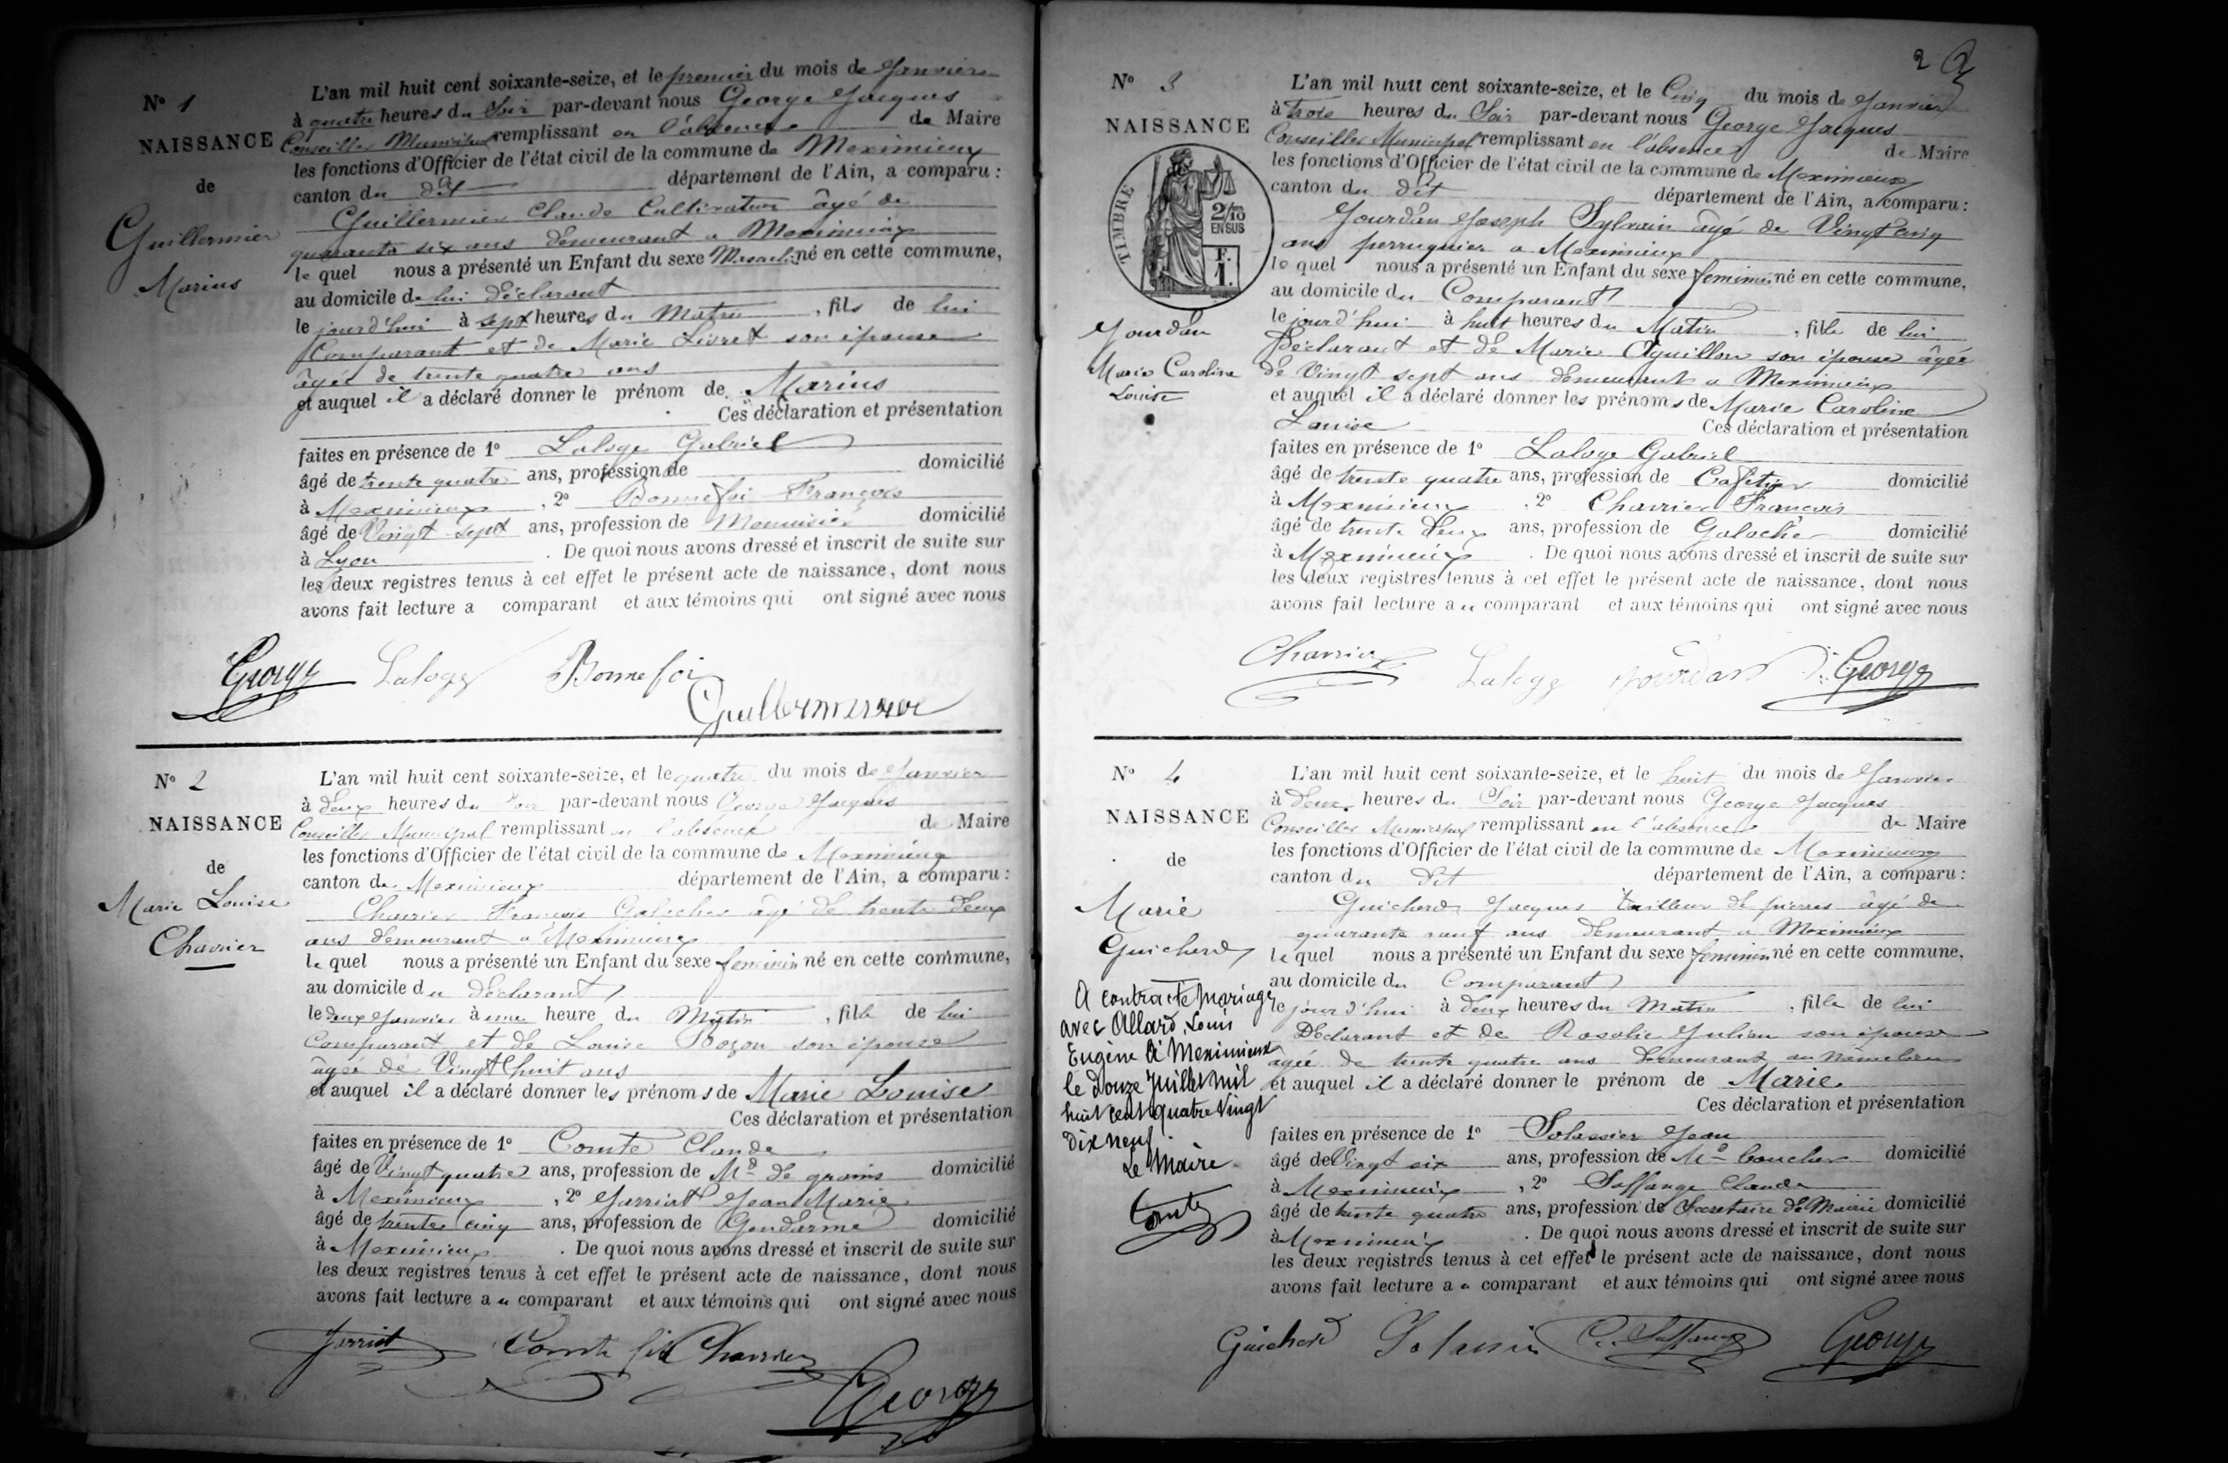 N° 1
NAISSANCE
de
Guillermier
Marius
L'an mil huit cent soixante-seize, et le premier du mois de Janvier
à quatre heures du Soir par-devant nous George Jacques
Conseiller Municipal remplissant en l'absence de Maire
les fonctions d'Officier de l'état civil de la commune de Meximieux
canton du dit département de l'Ain, a comparu :
Guillermier Claude Cultivateur âgé de
quarante six ans demeurant a Meximieux
le quel nous a présenté un Enfant du sexe Masculin né en cette commune,
au domicile de lui Déclarant
le jourd'hui à sept heures du Matin, fils de lui
Comparant et de Marie Livret son épouse
âgée de trente quatre ans
et auquel il a déclaré donner le prénom de Marius
Ces déclaration et présentation
faites en présence de 1° Laloge Gabriel
âgé de trente quatre ans, profession de domicilié
à Meximieux, 2° Bonnefoi François
âgé de Vingt sept ans, profession de Menuisier domicilié
à Lyon. De quoi nous avons dressé et inscrit de suite sur
les deux registres tenus à cet effet le présent acte de naissance, dont nous
avons fait lecture a comparant et aux témoins qui ont signé avec nous
George Laloge Bonnefoi
Guillermier
N° 2
NAISSANCE
de
Marie Louise
Chavrier
L'an mil huit cent soixante-seize, et le quatre du mois de Janvier
à deux heures du Soir par-devant nous George Jacques
Conseiller Municipal remplissant en l'absence de Maire
les fonctions d'Officier de l'état civil de la commune de Meximieux
canton de Meximieux département de l'Ain, a comparu :
Chavrier François Galocher âgé de trente deux
ans demeurant a Meximieux
le quel nous a présenté un Enfant du sexe feminin né en cette commune,
au domicile du déclarant
le deux Janvier à une heure du Matin, fille de lui
Comparant et de Louise Bozon son épouse
âgée de Vingt huit ans
et auquel il a déclaré donner les prénoms de Marie Louise
Ces déclaration et présentation
faites en présence de 1° Comte Claude
âgé de Vingt quatre ans, profession de Md de grains domicilié
à Meximieux, 2° Jarriat Jean Marie
âgé de trente cinq ans, profession de Gendarme domicilié
à Meximieux. De quoi nous avons dressé et inscrit de suite sur
les deux registres tenus à cet effet le présent acte de naissance, dont nous
avons fait lecture au comparant et aux témoins qui ont signé avec nous
Jarriat Comte fils Chavrier
George
2
N° 3
NAISSANCE
TIMBRE
2/10
EN SUS
F.
1.
Jourdan
Marie Caroline
Louise
L'an mil huit cent soixante-seize, et le Cinq du mois de Janvier
à trois heures du Soir par-devant nous George Jacques
Conseiller Municipal remplissant en l'absence de Maire
les fonctions d'Officier de l'état civil de la commune de Meximieux
canton du dit département de l'Ain, a comparu :
Jourdan Joseph Sylvain âgé de Vingt cinq
ans perruquier a Meximieux
le quel nous a présenté un Enfant du sexe feminin né en cette commune,
au domicile du Comparant
le jourd'hui à huit heures du Matin, fille de lui
Déclarant et de Marie Aguillon son épouse âgée
de Vingt sept ans demeurant a Meximieux
et auquel il a déclaré donner les prénoms de Marie Caroline
Louise Ces déclaration et présentation
faites en présence de 1° Laloge Gabriel
âgé de trente quatre ans, profession de Cafetier domicilié
à Meximieux, 2° Chavrier François
âgé de trente deux ans, profession de Galocher domicilié
à Meximieux. De quoi nous avons dressé et inscrit de suite sur
les deux registres tenus à cet effet le présent acte de naissance, dont nous
avons fait lecture au comparant et aux témoins qui ont signé avec nous
Chavrier Laloge Jourdan George
N° 4
NAISSANCE
de
Marie
Guichard
A contracté mariage
avec Allard, Louis
Eugène à Meximieux
le Douze Juillet mil
huit cent quatre vingt
dix neuf
Le Maire
Comte
L'an mil huit cent soixante-seize, et le huit du mois de Janvier
à deux heures du Soir par-devant nous George Jacques
Conseiller Municipal remplissant en l'absence de Maire
les fonctions d'Officier de l'état civil de la commune de Meximieux
canton du dit département de l'Ain, a comparu :
Guichard Jacques tailleur de pierres âgé de
quarante neuf ans demeurant a Meximieux
le quel nous a présenté un Enfant du sexe feminin né en cette commune,
au domicile du Comparant
le jourd'hui à deux heures du Matin, fille de lui
Déclarant et de Rosalie Julien son épouse
âgée de trente quatre ans demeurant au même lieu
et auquel il a déclaré donner le prénom de Marie
Ces déclaration et présentation
faites en présence de 1° Solassier Jean
âgé de Vingt six ans, profession de Md boucher domicilié
à Meximieux, 2° Saffange Claude
âgé de trente quatre ans, profession de Secretaire de Mairie domicilié
à Meximieux. De quoi nous avons dressé et inscrit de suite sur
les deux registres tenus à cet effet le présent acte de naissance, dont nous
avons fait lecture au comparant et aux témoins qui ont signé avec nous
Guichard Solassier C. Saffange George